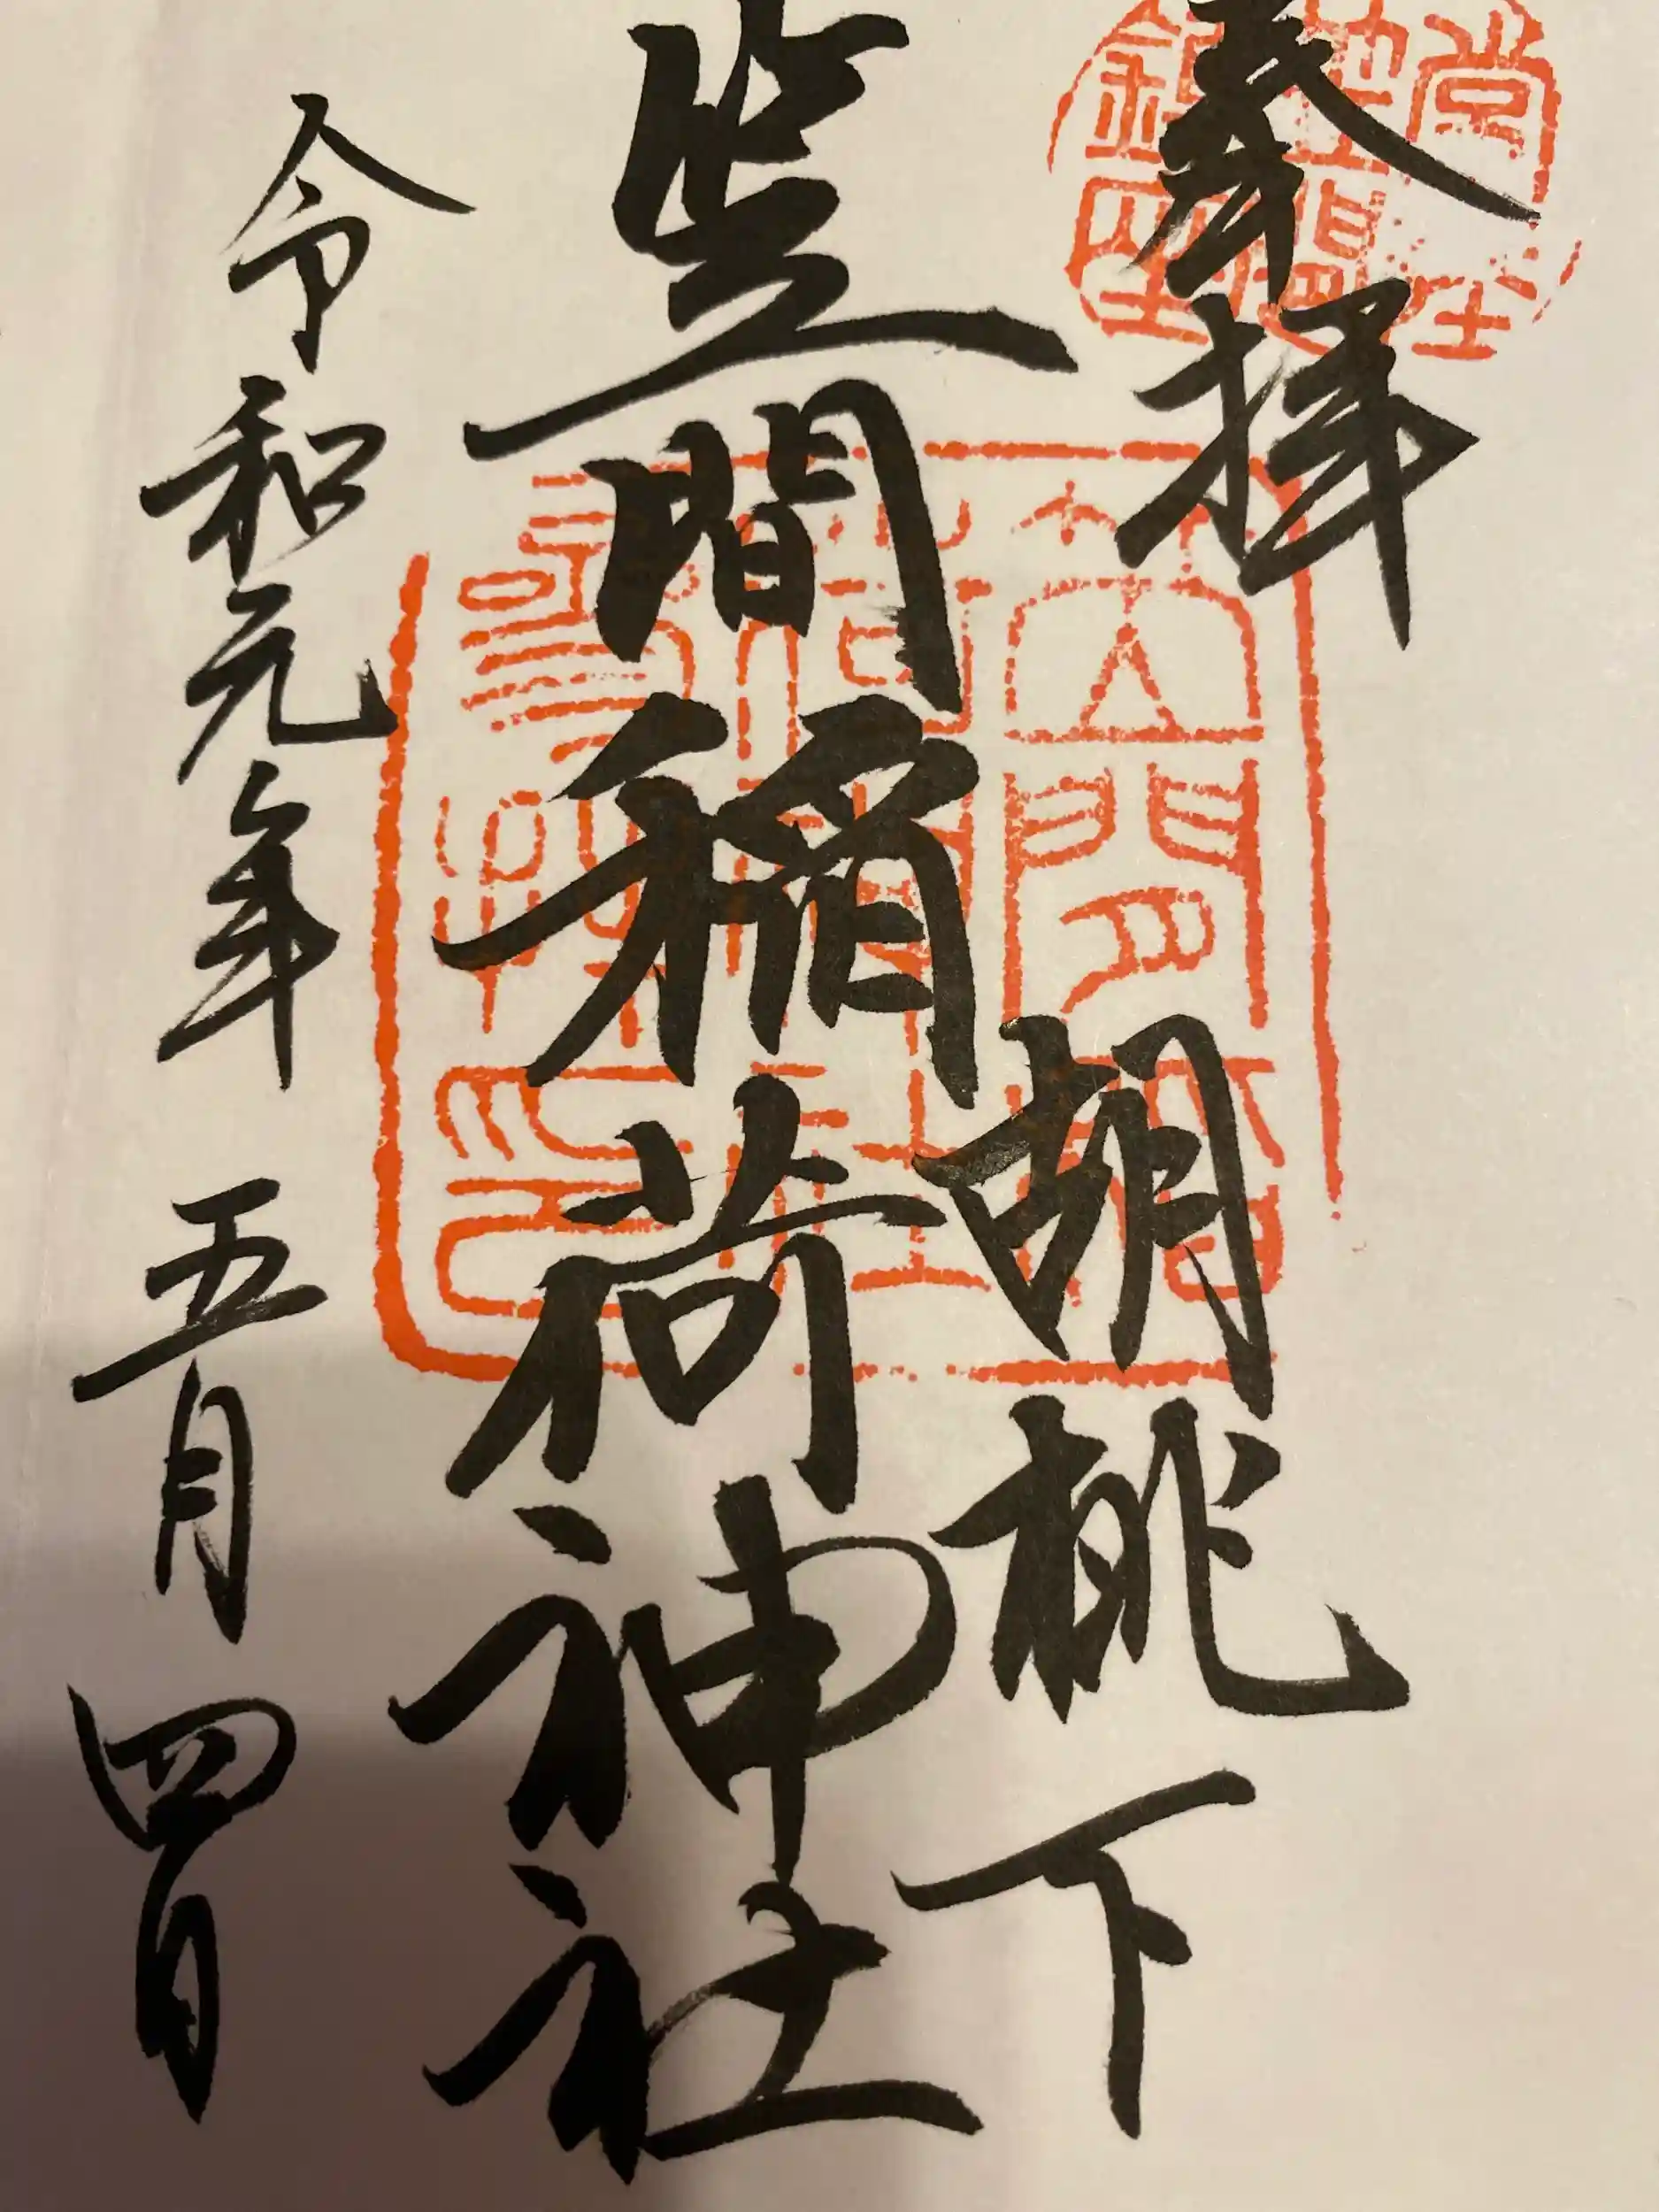 奉拝
胡桃下
笠間稲荷神社
令和元年 五月 四日